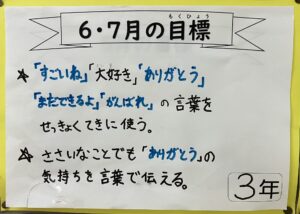 もくひょう
6・7月の目標
☆「すごいね」「大好き」「ありがとう」
「まだできるよ」「がんばれ」の言葉を
せっきょくてきに使う。
☆ ささいなことでも「ありがとう」の
気持ちを言葉で伝える。
3年